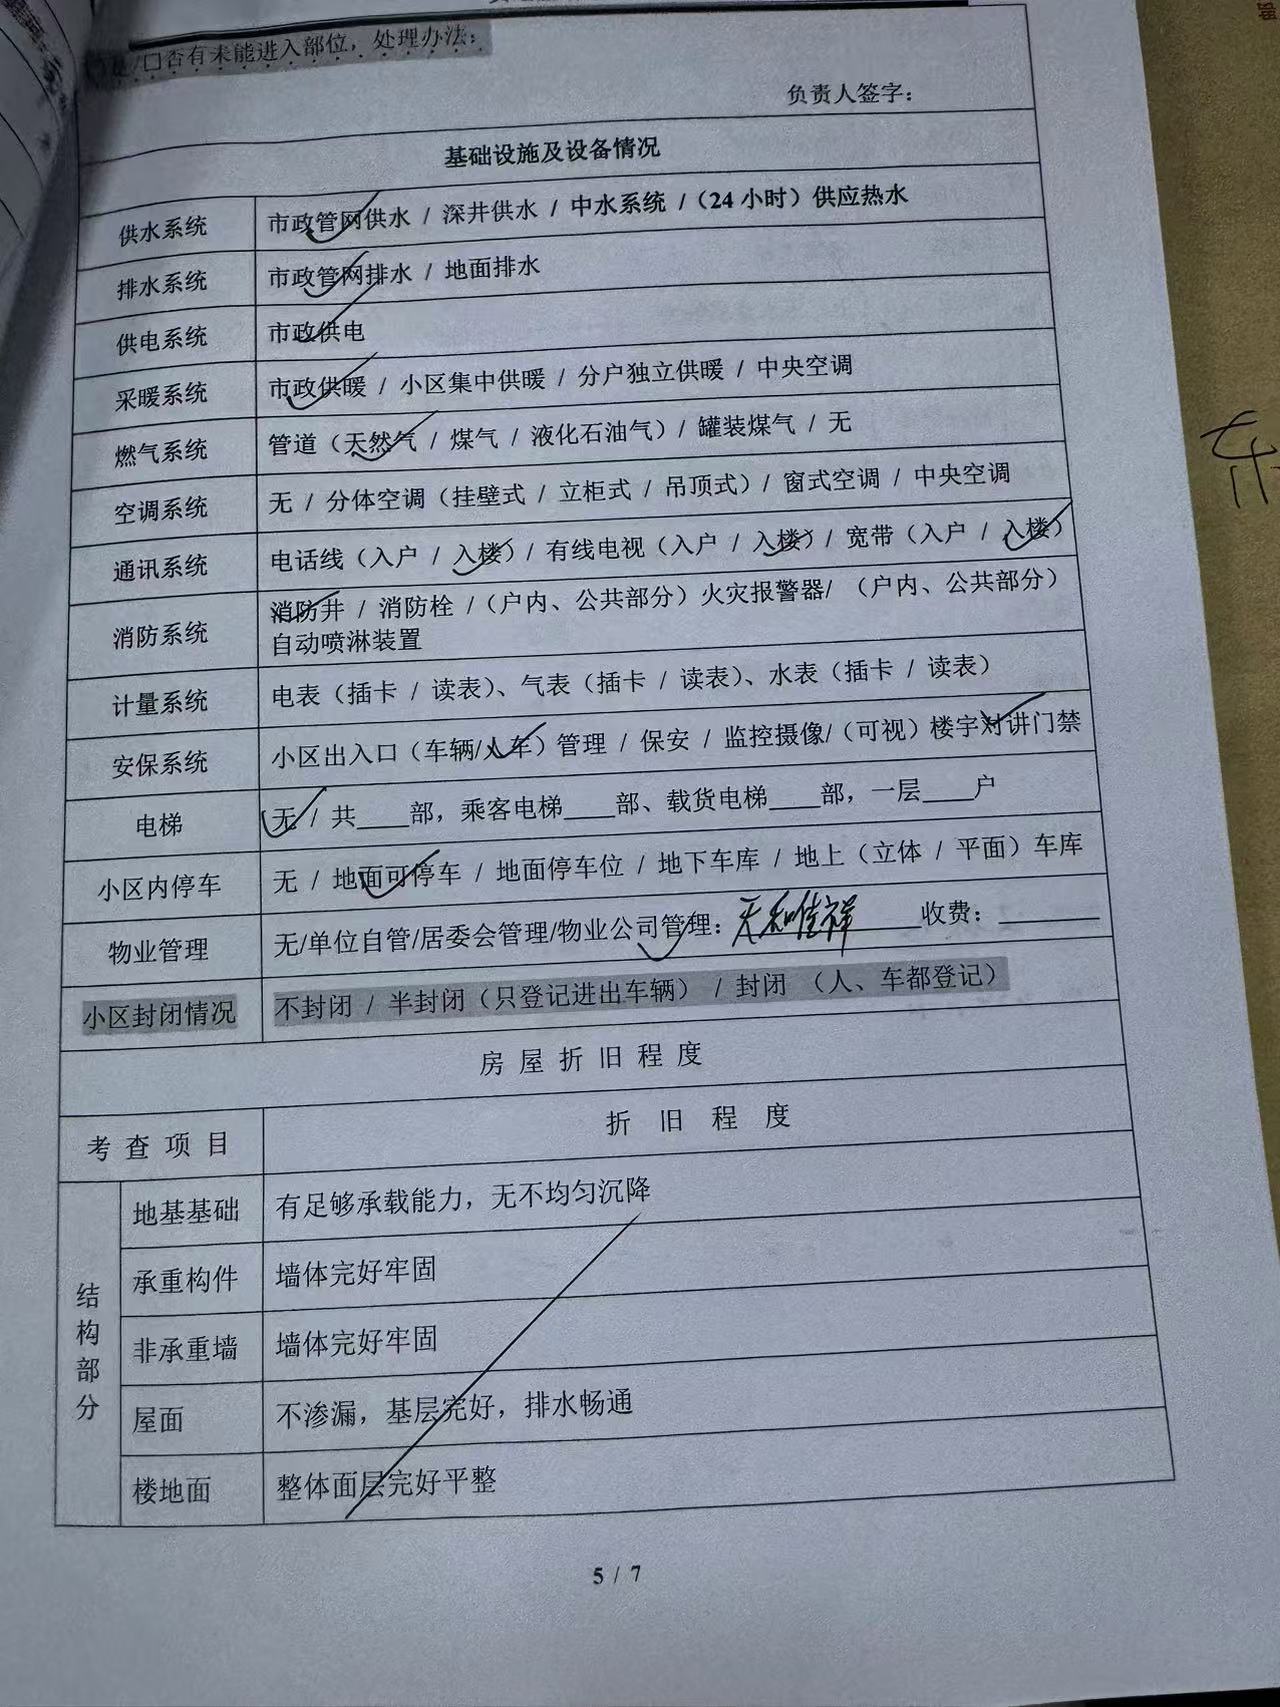 /□否有未能进入部位，处理办法：
负责人签字：
基础设施及设备情况
供水系统 市政管网供水 / 深井供水 / 中水系统 /（24 小时）供应热水
排水系统 市政管网排水 / 地面排水
供电系统 市政供电
采暖系统 市政供暖 / 小区集中供暖 / 分户独立供暖 / 中央空调
燃气系统 管道（天然气 / 煤气 / 液化石油气）/ 罐装煤气 / 无
空调系统 无 / 分体空调（挂壁式 / 立柜式 / 吊顶式）/ 窗式空调 / 中央空调
通讯系统 电话线（入户 / 入楼）/ 有线电视（入户 / 入楼）/ 宽带（入户 / 入楼）
消防系统 消防井 / 消防栓 /（户内、公共部分）火灾报警器/ （户内、公共部分）
自动喷淋装置
计量系统 电表（插卡 / 读表）、气表（插卡 / 读表）、水表（插卡 / 读表）
安保系统 小区出入口（车辆/人车）管理 / 保安 / 监控摄像/（可视）楼宇对讲门禁
电梯 无 / 共____部，乘客电梯____部、载货电梯____部，一层____户
小区内停车 无 / 地面可停车 / 地面停车位 / 地下车库 / 地上（立体 / 平面）车库
物业管理 无/单位自管/居委会管理/物业公司管理：天和佳祥 收费：
小区封闭情况 不封闭 / 半封闭（只登记进出车辆） / 封闭 （人、车都登记）
房屋折旧程度
考查项目 折旧程度
结构部分
地基基础 有足够承载能力，无不均匀沉降
承重构件 墙体完好牢固
非承重墙 墙体完好牢固
屋面 不渗漏，基层完好，排水畅通
楼地面 整体面层完好平整
5 / 7